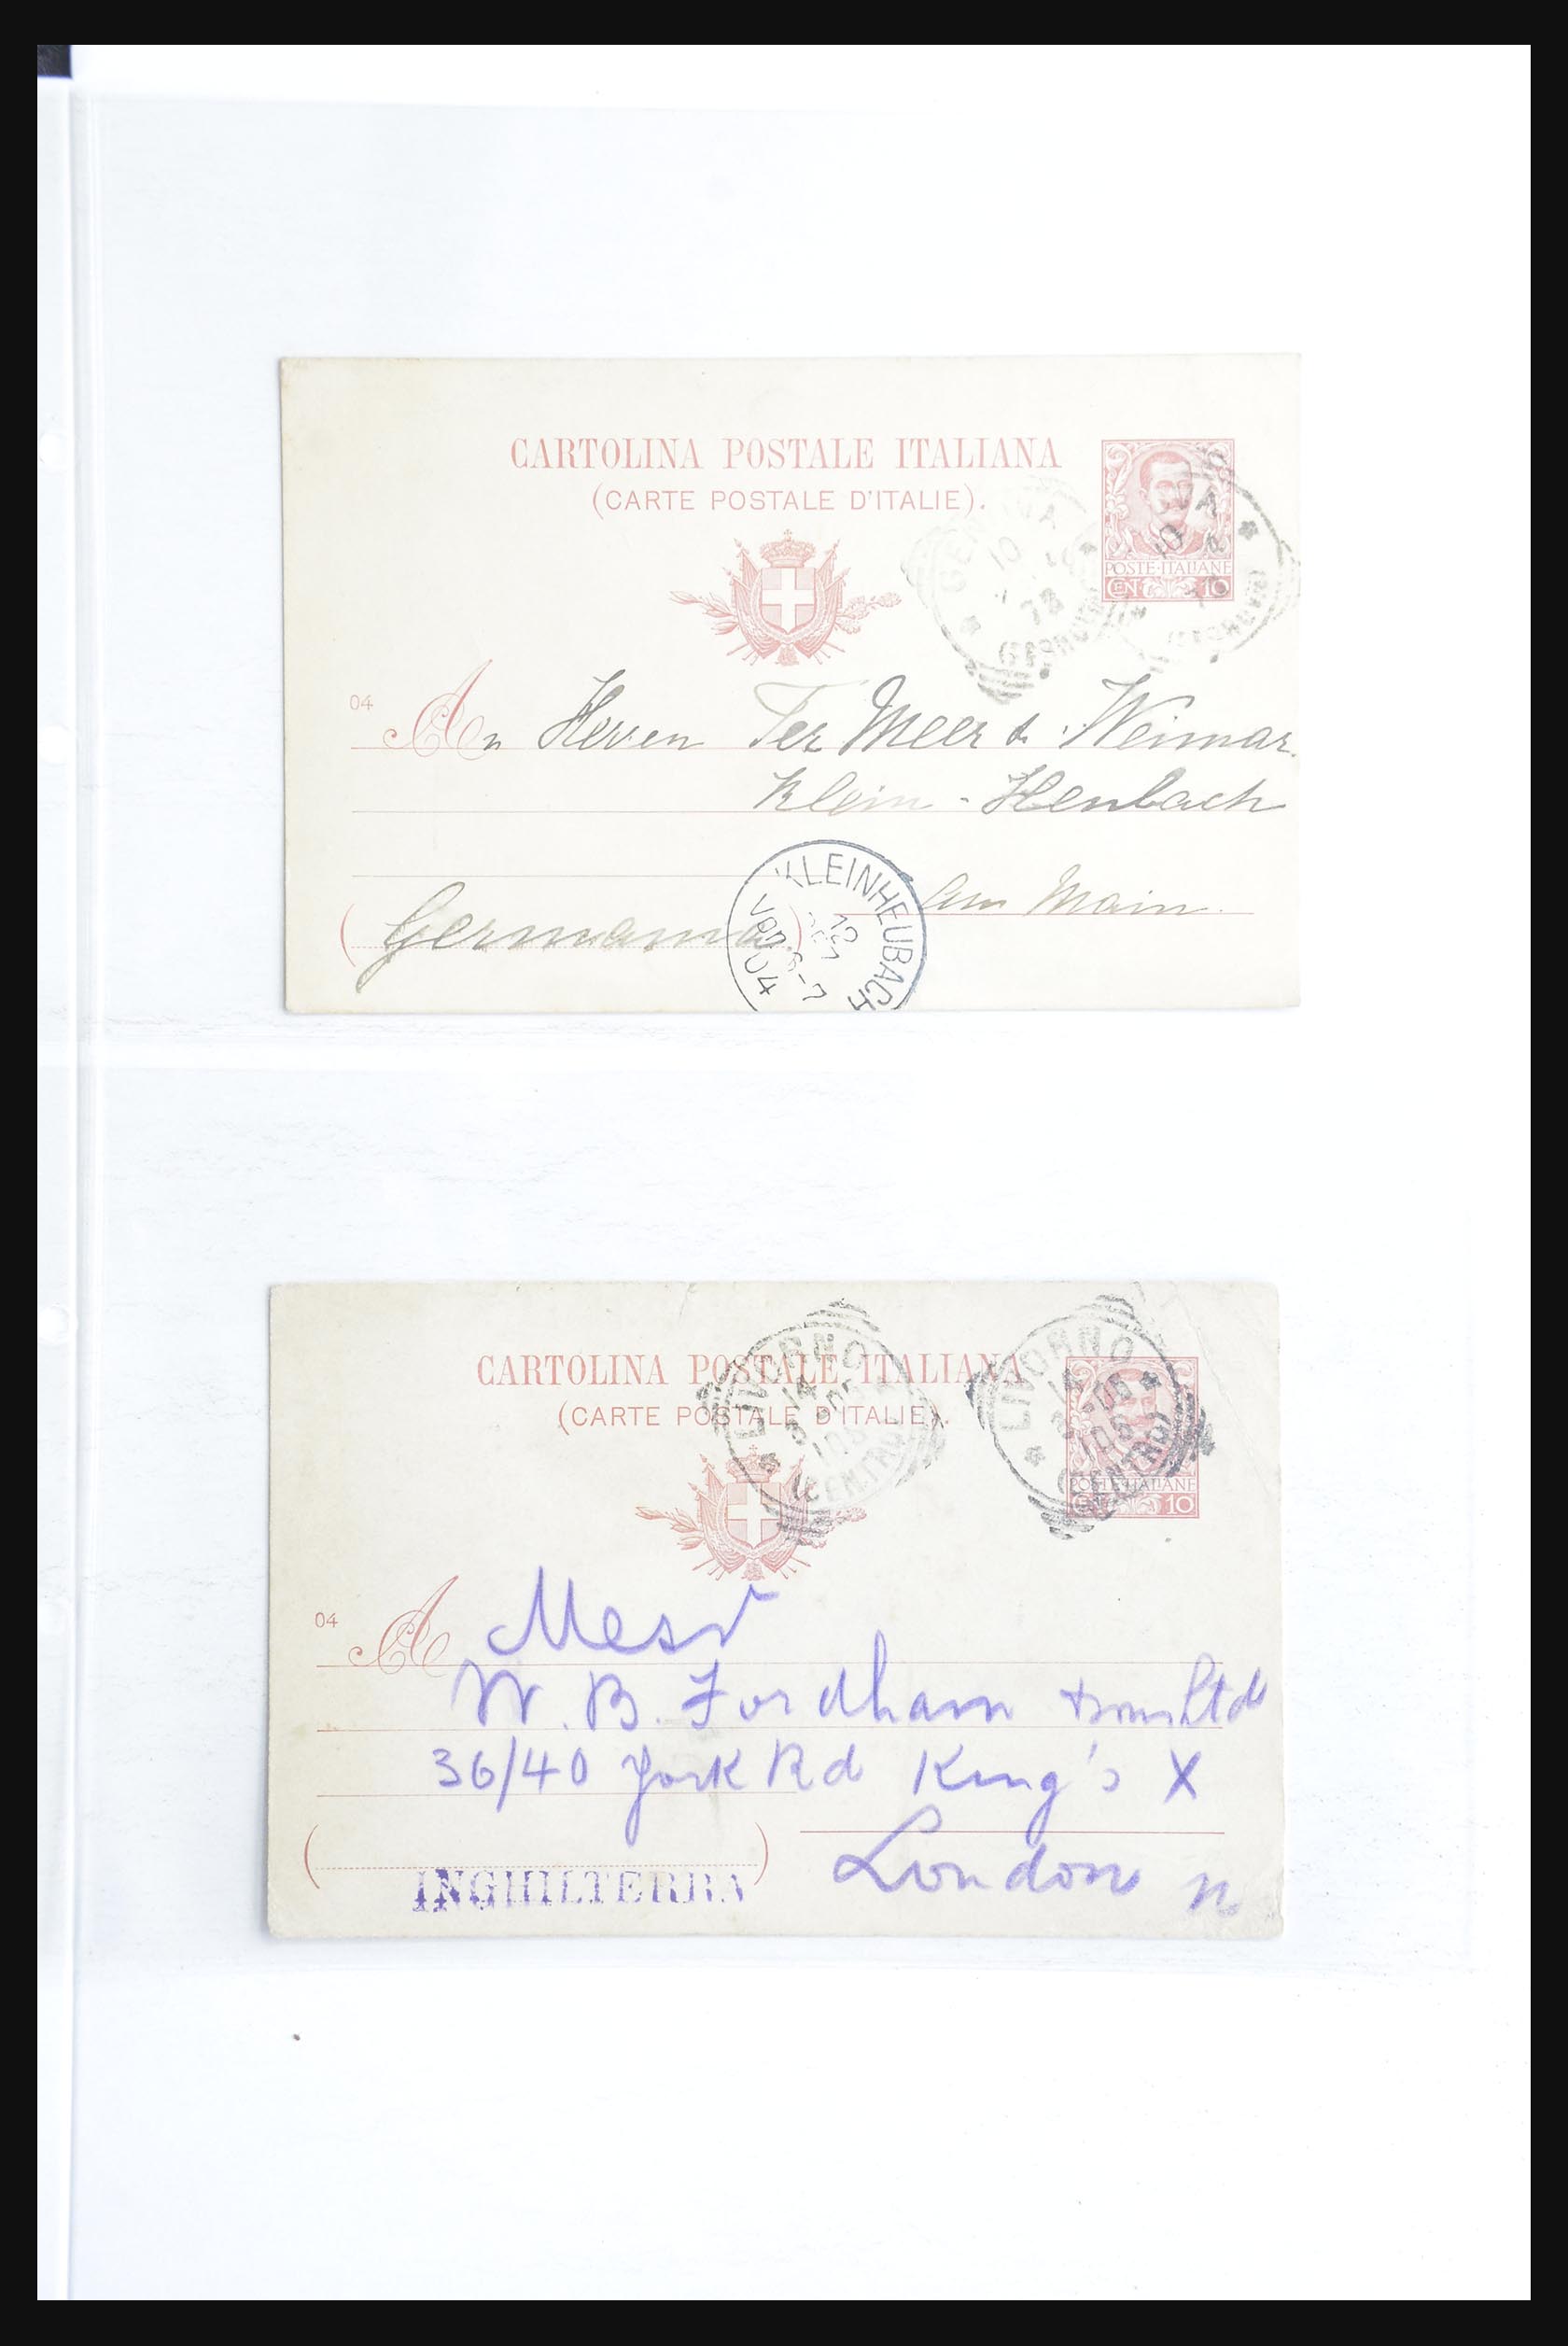 CARTOLINA POSTALE ITALIANA
(CARTE POSTALE D'ITALIE).
POSTE·ITALIANE
CENT 10
GENOVA
10
78
(FERROVIA)
04
An Herren Ter Meer & Weimar.
Klein-Heubach
am Main.
Germania
KLEINHEUBACH
12
VOR. 6-7
04
CARTOLINA POSTALE ITALIANA
(CARTE POSTALE D'ITALIE).
POSTE·ITALIANE
10
LIVORNO
14
3-05
10S
(CENTRO)
LIVORNO
14
3-05
10S
(CENTRO)
04
A Mess
W. B. Fordham & Sons Ltd
36/40 York Rd King's X
London N
INGHILTERRA